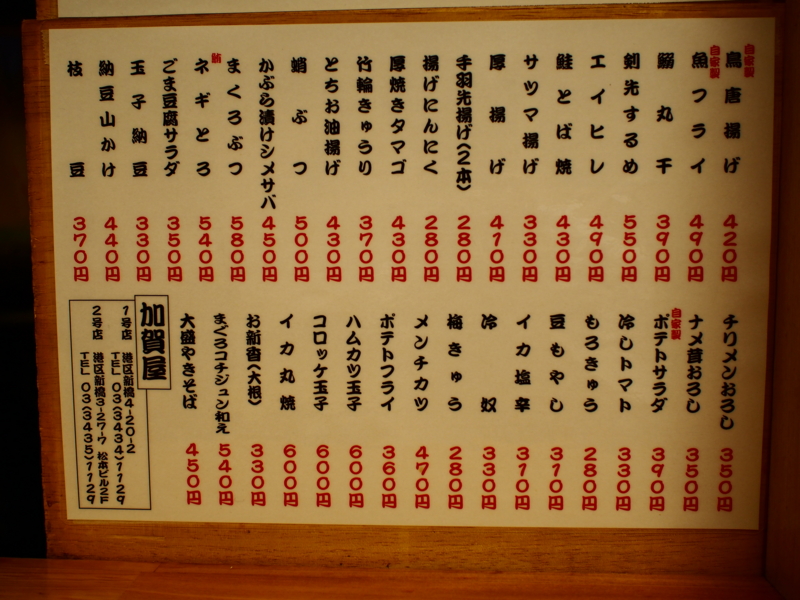 自家製
鳥唐揚げ 420円
自家製
魚フライ 490円
鰯丸干 390円
剣先するめ 550円
エイヒレ 490円
鮭とば焼 430円
サツマ揚げ 330円
厚揚げ 410円
手羽先揚げ(2本) 280円
揚げにんにく 280円
厚焼きタマゴ 430円
竹輪きゅうり 370円
とちお油揚げ 430円
蛸ぶつ 500円
かぶら漬けシメサバ 450円
まくろぶつ 580円
鮪
ネギとろ 540円
ごま豆腐サラダ 350円
玉子納豆 330円
納豆山かけ 440円
枝豆 370円
チリメンおろし 350円
ナメ茸おろし 350円
自家製
ポテトサラダ 390円
冷しトマト 330円
もろきゅう 280円
豆もやし 310円
イカ塩辛 310円
冷奴 330円
梅きゅう 280円
メンチカツ 470円
ポテトフライ 360円
ハムカツ玉子 600円
コロッケ玉子 600円
イカ丸焼 600円
お新香(大根) 330円
まぐろコチジュン和え 540円
大盛やきそば 450円
加賀屋
1号店 港区新橋4-20-2
TEL 03(3434)1129
2号店 港区新橋3-27-7 松本ビル2F
TEL 03(3435)1129